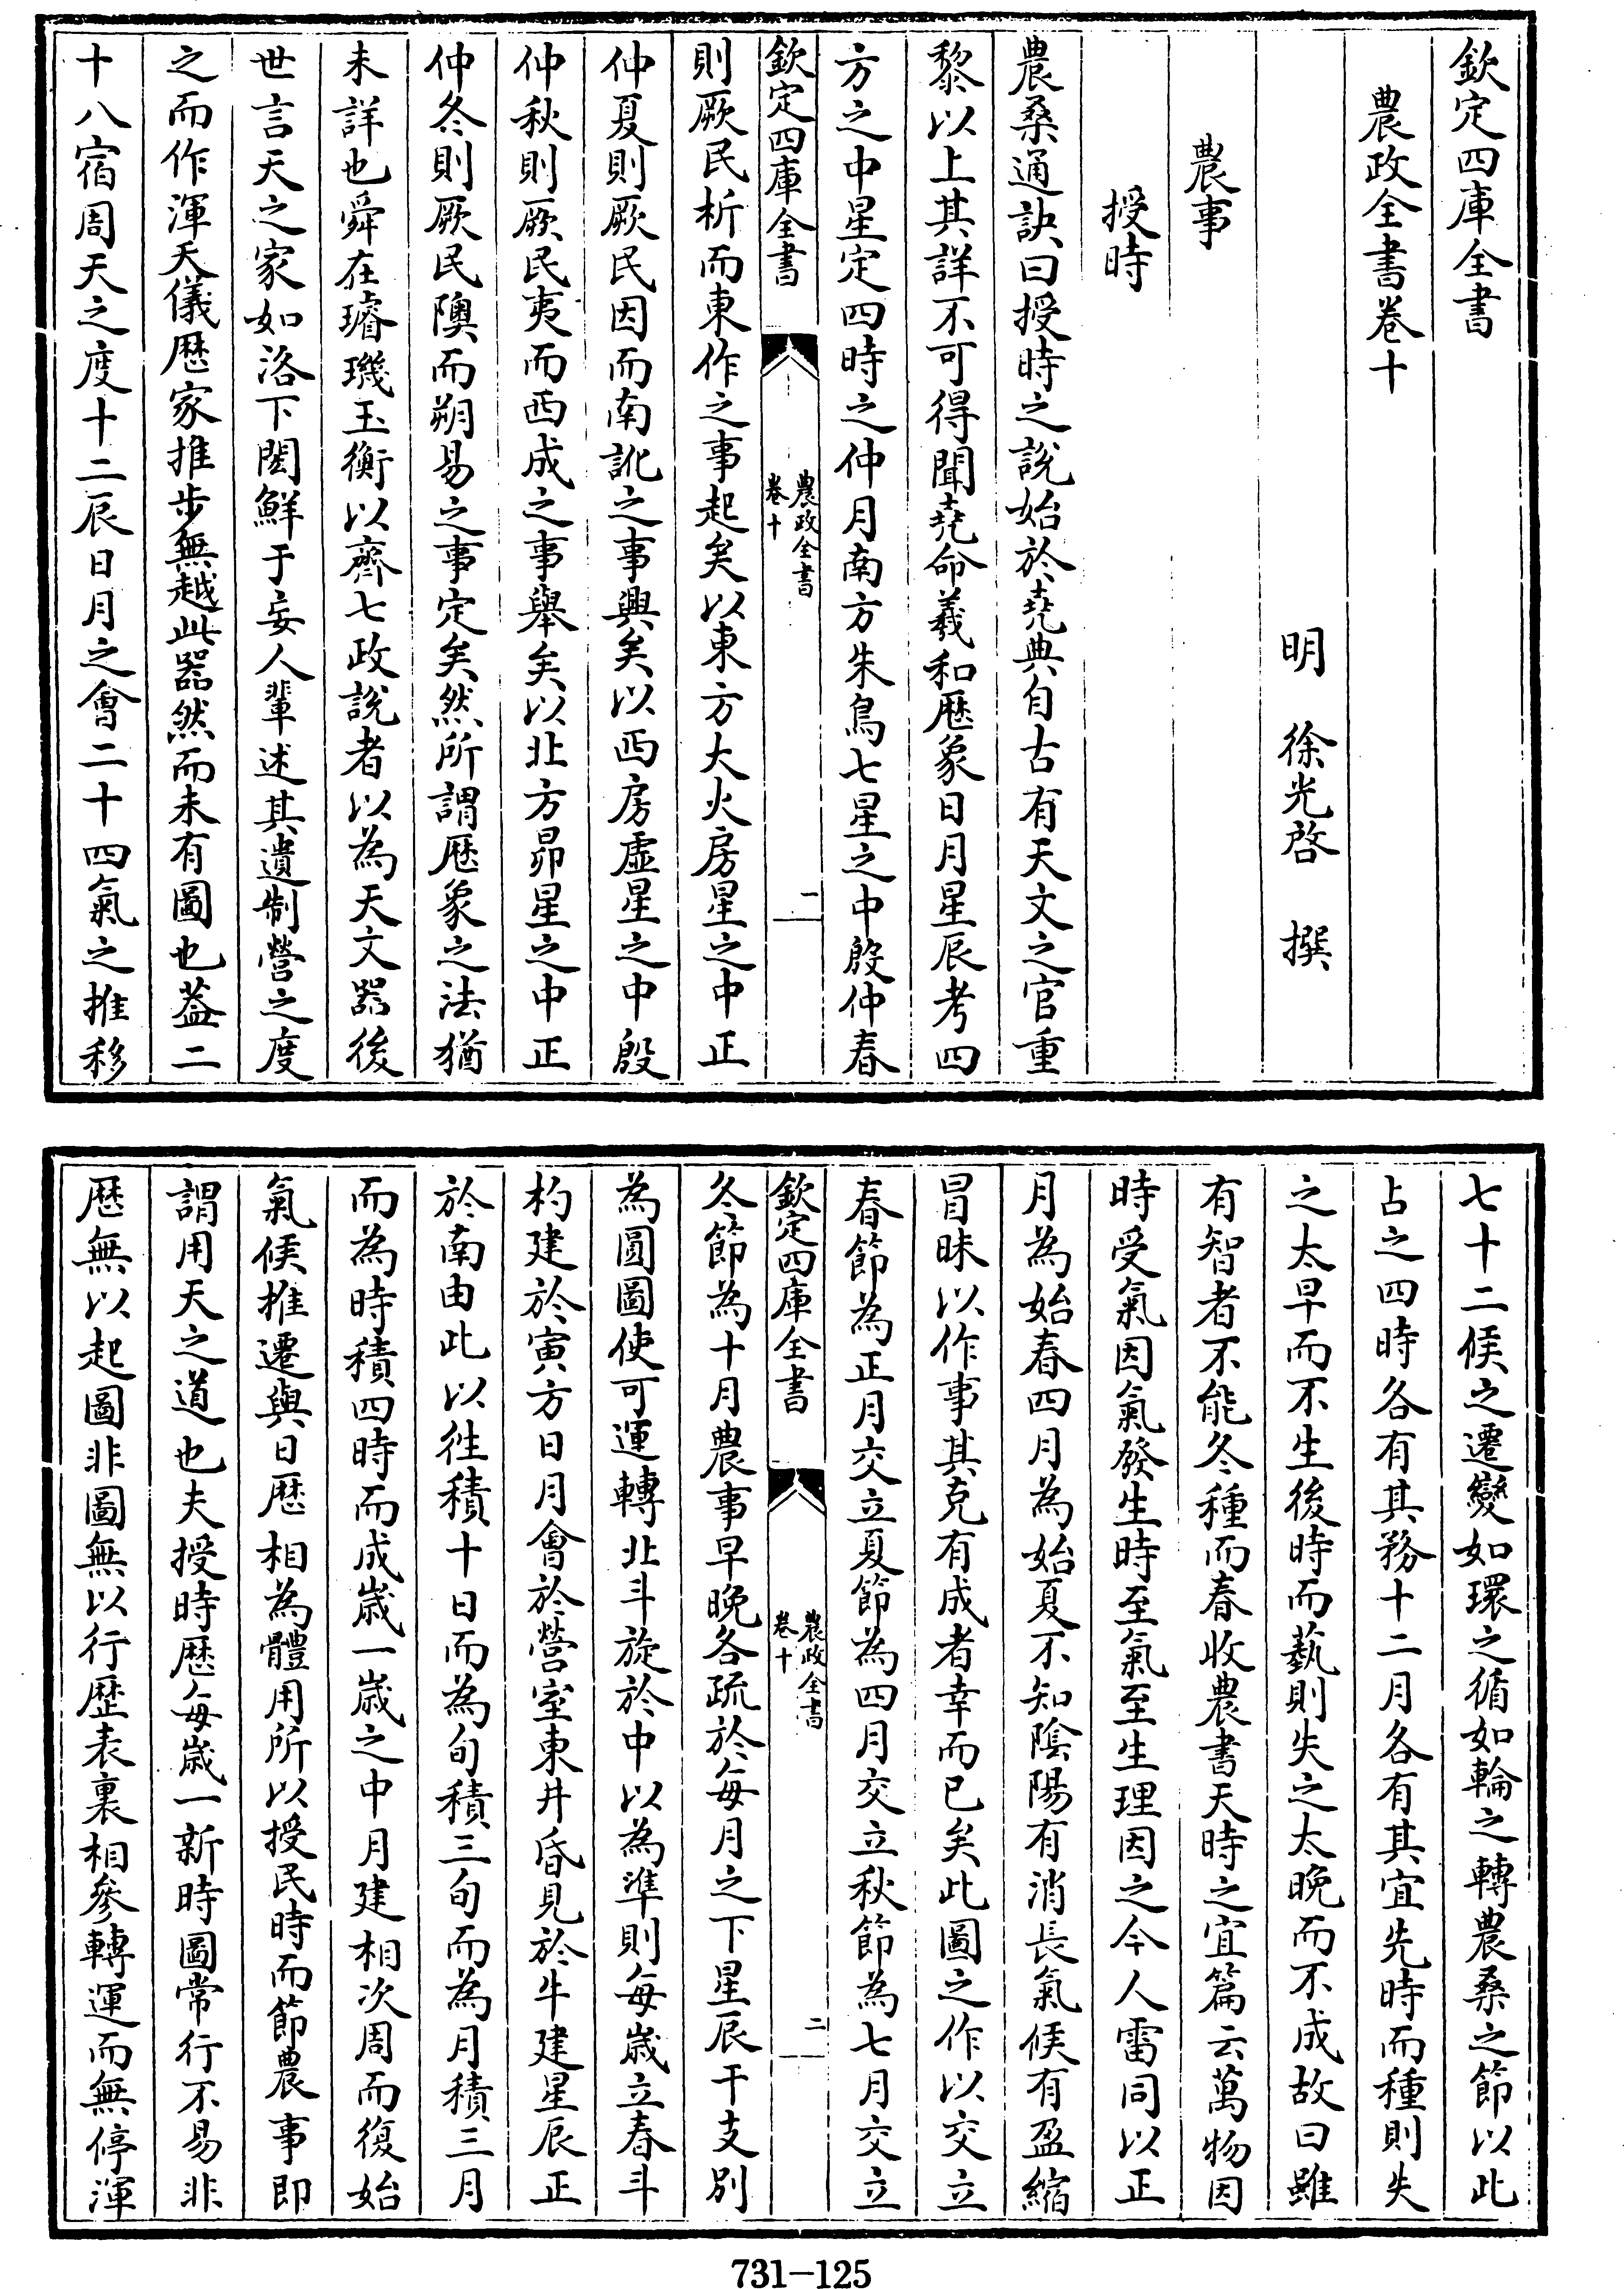 欽定四庫全書
農政全書卷十
明 徐光啓 撰
農事
授時
農桑通訣曰授時之說始於堯典自古有天文之官重
黎以上其詳不可得聞堯命羲和厯象日月星辰考四
方之中星定四時之仲月南方朱鳥七星之中殷仲春
欽定四庫全書
農政全書
卷十
一
則厥民析而東作之事起矣以東方大火房星之中正
仲夏則厥民因而南訛之事興矣以西房虛星之中殷
仲秋則厥民夷而西成之事舉矣以北方昴星之中正
仲冬則厥民隩而朔易之事定矣然所謂厯象之法猶
未詳也舜在璿璣玉衡以齊七政說者以為天文器後
世言天之家如洛下閎鮮于妄人輩述其遺制營之度
之而作渾天儀厯家推步無越此器然而未有圖也葢二
十八宿周天之度十二辰日月之會二十四氣之推移
七十二候之遷變如環之循如輪之轉農桑之節以此
占之四時各有其務十二月各有其宜先時而種則失
之太早而不生後時而藝則失之太晚而不成故曰雖
有智者不能冬種而春收農書天時之宜篇云萬物因
時受氣因氣發生時至氣至生理因之今人雷同以正
月為始春四月為始夏不知陰陽有消長氣候有盈縮
冒昧以作事其克有成者幸而已矣此圖之作以交立
春節為正月交立夏節為四月交立秋節為七月交立
欽定四庫全書
農政全書
卷十
二
冬節為十月農事早晚各疏於每月之下星辰干支別
為圓圖使可運轉北斗旋於中以為準則每歲立春斗
杓建於寅方日月會於營室東井昏見於牛建星辰正
於南由此以徃積十日而為旬積三旬而為月積三月
而為時積四時而成歲一歲之中月建相次周而復始
氣候推遷與日厯相為體用所以授民時而節農事即
謂用天之道也夫授時厯每歲一新時圖常行不易非
厯無以起圖非圖無以行厯表裏相參轉運而無停渾
731-125